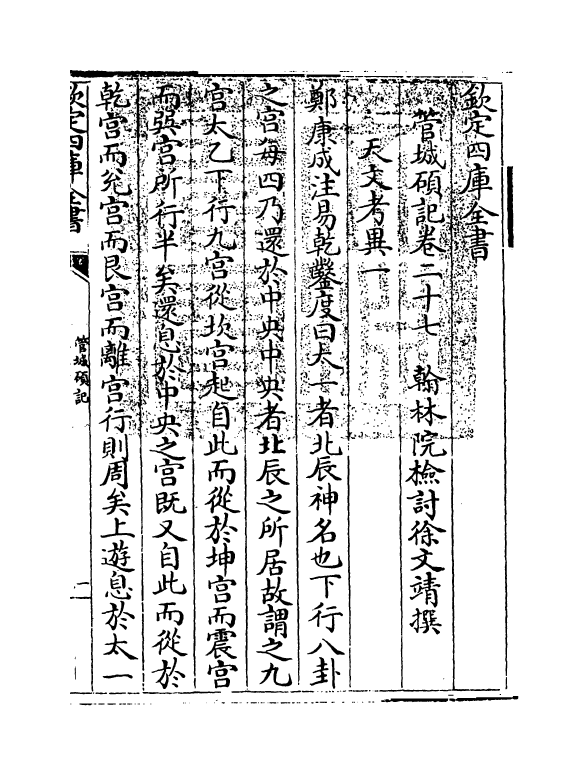 欽定四庫全書
管城碩記卷二十七 翰林院檢討徐文靖撰
天文考異一
鄭康成注易乾鑿度曰太一者北辰神名也下行八卦
之宫每四乃還於中央中央者北辰之所居故謂之九
宫太乙下行九宫從坎宫起自此而從於坤宫而震宫
而巽宫所行半矣還息於中央之宫既又自此而從於
乾宫而兊宫而艮宫而離宫行則周矣上遊息於太一
欽定四庫全書
管城碩記